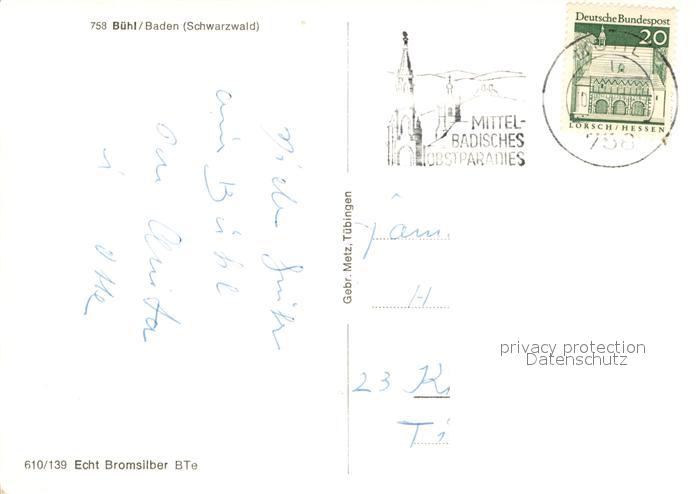 758 Bühl/Baden (Schwarzwald)
Deutsche Bundespost
20
LORSCH/HESSEN
758
MITTEL-
BADISCHES
OBSTPARADIES
Viele Grüße
aus Bühl
von Anita
Gebr. Metz, Tübingen
Fam.
H
23 Ki
Ti
privacy protection
Datenschutz
610/139 Echt Bromsilber BTe